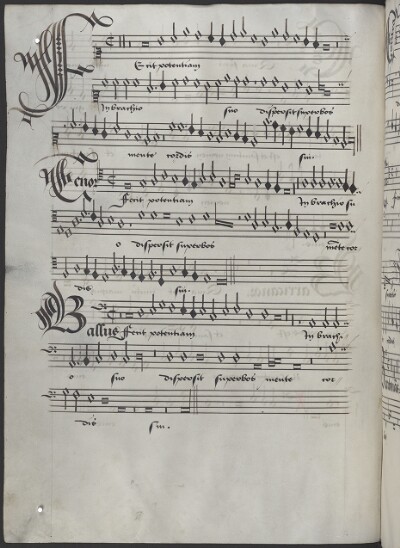 Fecit potentiam
In brachio suo dispersit superbos
mente cordis sui.
Tenor Fecit potentiam In brachio su
o dispersit superbos mente cor
dis sui.
Bassus Fecit potentiam In brachi
o suo dispersit superbos mente cor
dis sui.